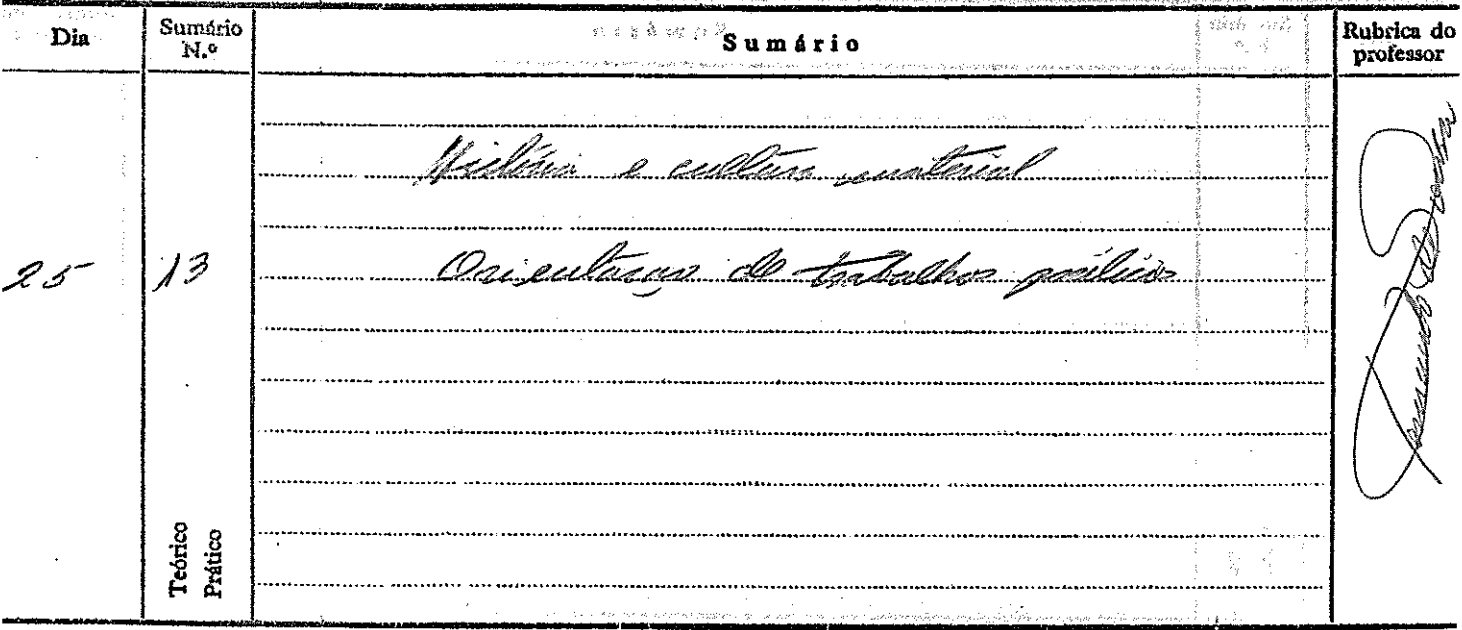 Dia
Sumário N.º
Sumário
Rubrica do professor
História e cultura material
25
13
Orientação de trabalhos práticos
Teórico
Prático